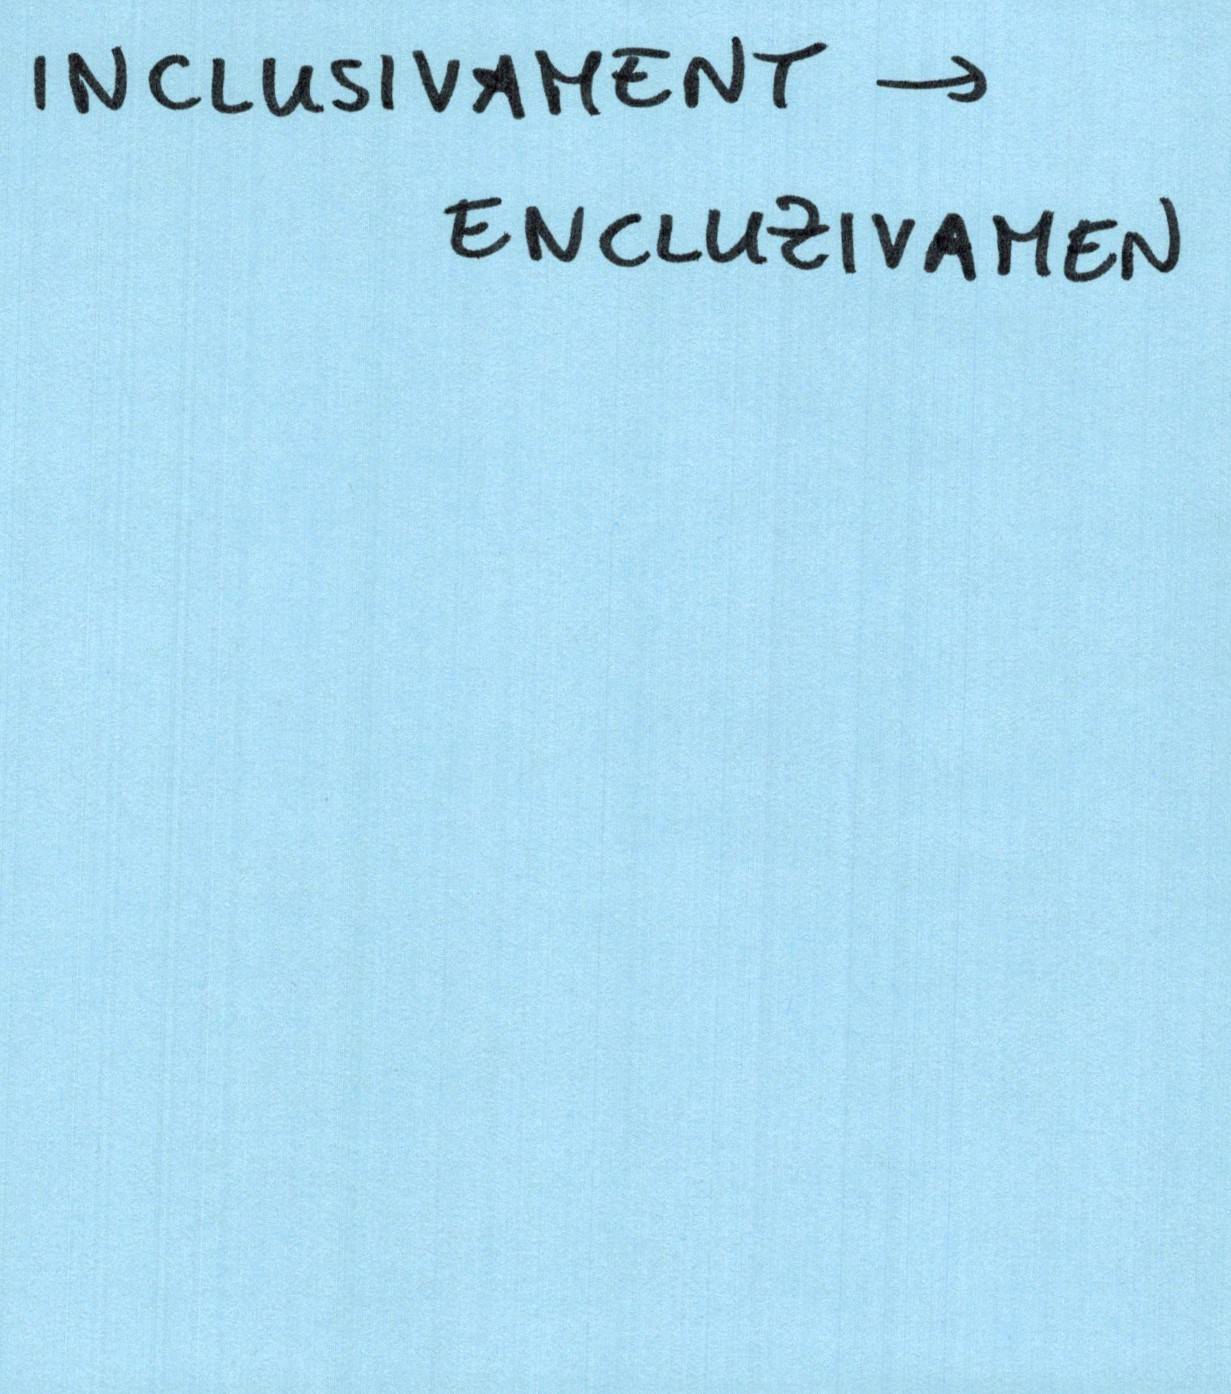 INCLUSIVAMENT →
ENCLUZIVAMEN